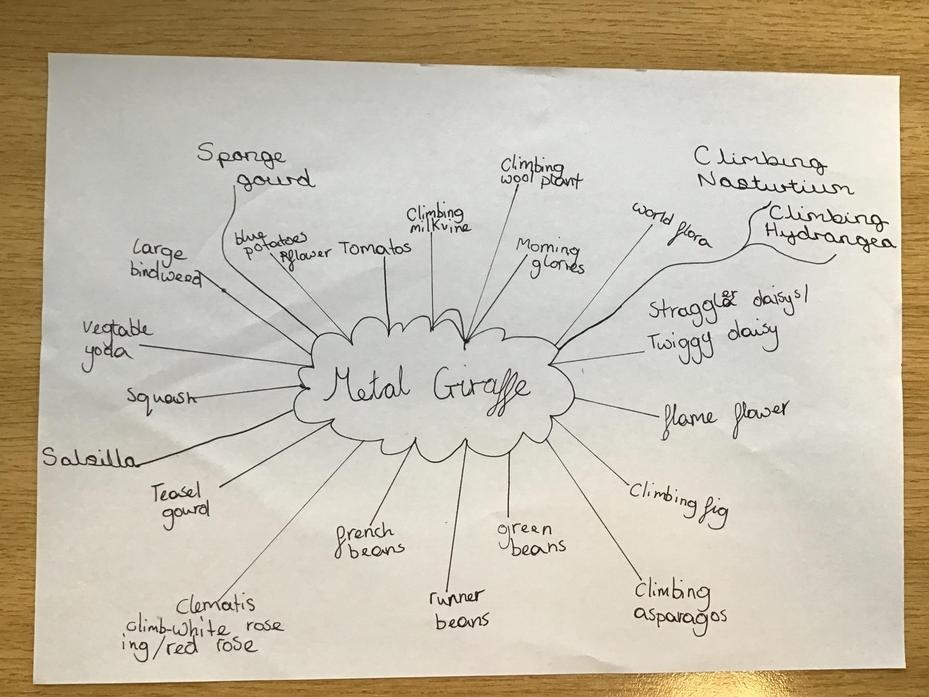 Sponge
gourd
Climbing
wool plant
Climbing
Nasturtium
Climbing
Hydrangea
world flora
Climbing
milkvine
blue
potatoes
flower
Tomatos
Morning
glories
Large
bindweed
Straggler daisys/
Twiggy daisy
vegtable
yoda
Squash
Metal Giraffe
flame flower
Salsilla
Teasel
gourd
Climbing fig
french
beans
green
beans
runner
beans
Climbing
asparagos
Clematis
climb-white rose
ing/red rose